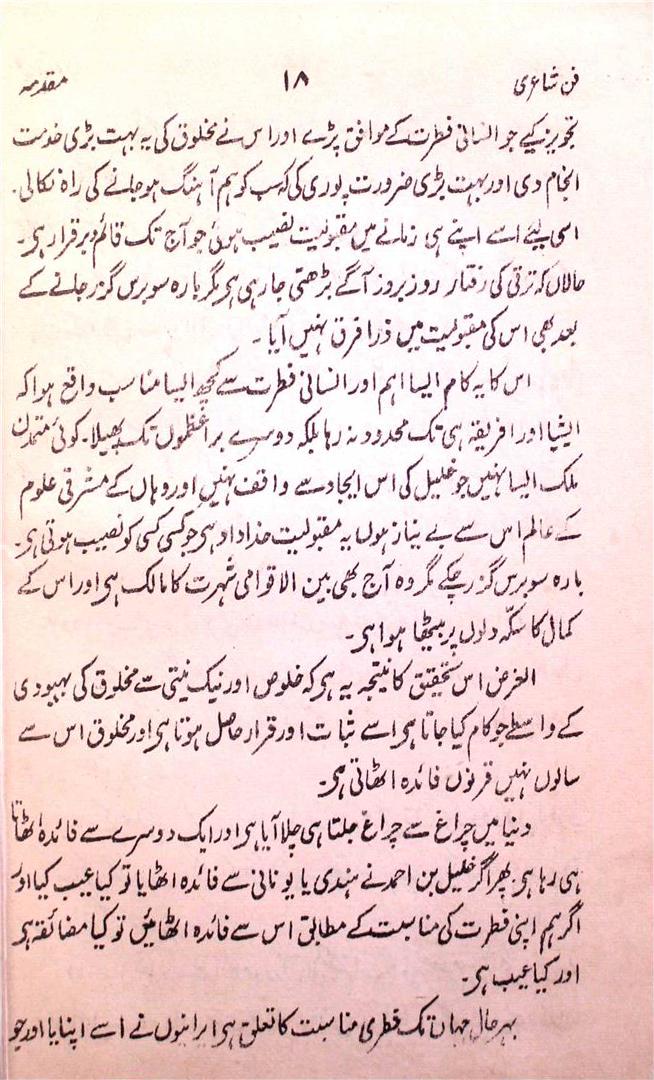 فن شاعری ۱۸ مقدمہ
تجویز کیے جو انسانی فطرت کے موافق پڑے اور اس نے مخلوق کی یہ بہت بڑی خدمت
انجام دی اور بہت بڑی ضرورت پوری کی کہ سب کو ہم آہنگ ہو جانے کی راہ نکالی۔
اسی لیئے اسے اپنے ہی زمانے میں مقبولیت نصیب ہوئی جو آج تک قائم و برقرار ہی۔
حالاں کہ ترقی کی رفتار روز بروز آگے بڑھتی جا رہی ہی مگر بارہ سو برس گزر جانے کے
بعد بھی اس کی مقبولیت میں ذرا فرق نہیں آیا۔
اس کا یہ کام ایسا اہم اور انسانی فطرت سے کچھ ایسا مناسب واقع ہوا کہ
ایشیا اور افریقہ ہی تک محدود نہ رہا بلکہ دوسرے براعظموں تک پھیلا۔ کوئی متمدن
ملک ایسا نہیں جو خلیل کی اس ایجاد سے واقف نہیں اور وہاں کے مشرقی علوم
کے عالم اس سے بے نیاز ہوں یہ مقبولیت خداداد ہی جو کسی کسی کو نصیب ہوتی ہی۔
بارہ سو برس گزر چکے مگر وہ آج بھی بین الاقوامی شہرت کا مالک ہی اور اس کے
کمال کا سکّہ دلوں پر بیٹھا ہوا ہی۔
الغرض اس تحقیق کا نتیجہ یہ ہی کہ خلوص اور نیک نیتی سے مخلوق کی بہبودی
کے واسطے جو کام کیا جاتا ہی اسے ثبات اور قرار حاصل ہوتا ہی اور مخلوق اس سے
سالوں نہیں قرنوں فائدہ اٹھاتی ہی۔
دنیا میں چراغ سے چراغ جلتا ہی چلا آیا ہی اور ایک دوسرے سے فائدہ اٹھاتا
ہی رہا ہی پھر اگر خلیل بن احمد نے ہندی یا یونانی سے فائدہ اٹھایا تو کیا عیب کیا اور
اگر ہم اپنی فطرت کی مناسبت کے مطابق اس سے فائدہ اٹھائیں تو کیا مضائقہ ہی
اور کیا عیب ہی۔
بہر حال جہاں تک فطری مناسبت کا تعلق ہی ایرانیوں نے اسے اپنایا اور جو